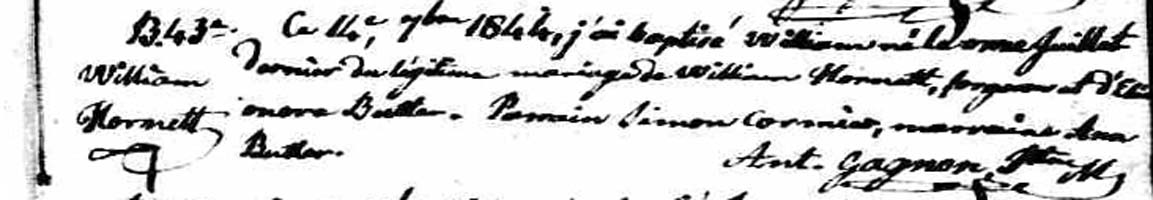 B. 43e. Ce 14e, 7bre 1844, j'ai baptisé William né le onze Juillet
William dernier du légitime mariage de William Hornett, forgeron et d'Elé
Hornett onore Butler. Parrain Simon Cormier, marraine Ann
Butler. Ant. Gagnon, Ptre M